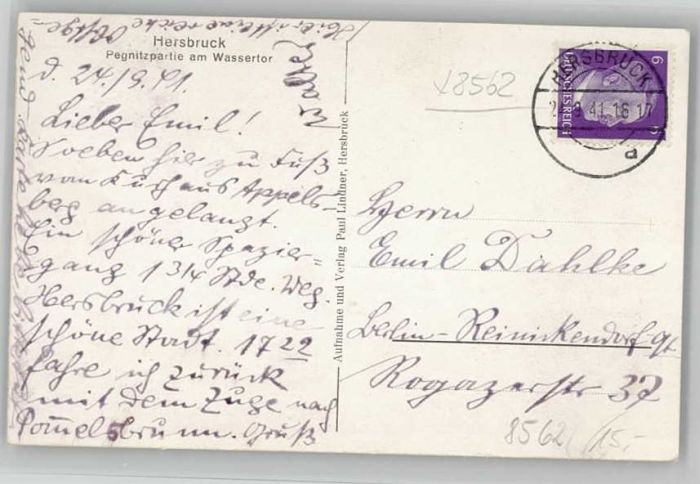 Hersbruck
Pegnitzpartie am Wassertor
d. 24./9.41.
Lieber Emil!
Soeben hier zu Fuß
vom Kurhaus Appels-
berg angelangt.
Ein schöner Spazier-
gang 1 3/4 Stde. Weg.
Hersbruck ist eine
schöne Stadt. 17 22
fahre ich zurück
mit dem Zuge nach
Pommelsbrunn. Gruß
Walter
Aufnahme und Verlag Paul Lindner, Hersbruck
18562
HERSBRUCK
9.41.16-17
a
DEUTSCHES REICH
6
Herrn
Emil Dahlke
Berlin-Reinickendorf-
Rogazerstr 37
8562
15,-